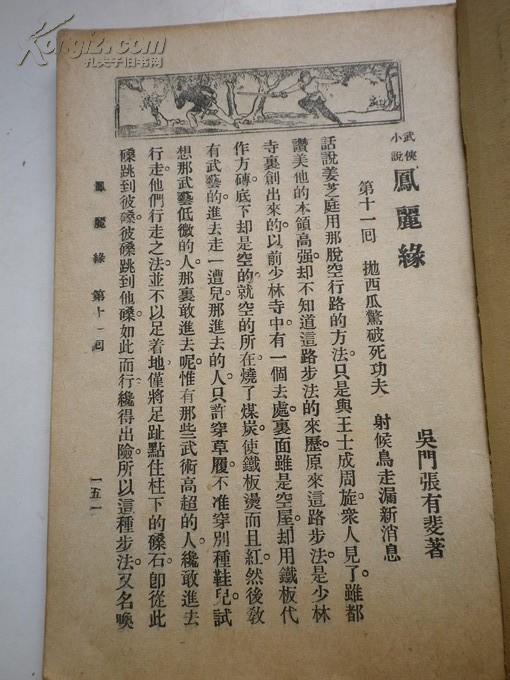 Kongfz.com
孔夫子旧书网
武俠小說 鳳麗緣
吳門張有斐著
第十一回 拋西瓜驚破死功夫 射候鳥走漏新消息
話說姜芝庭用那脫空行路的方法。只是與王士成周旋。衆人見了。雖都
讚美他的本領高强。却不知道這路步法的來歷。原來這路步法。是少林
寺裏創出來的。以前少林寺中。有一個去處。裏面雖是空屋。却用鐵板代
作方磚。底下却是空的。就空的所在。燒了煤炭。使鐵板燙而且紅。然後敎
有武藝的。進去走一遭兒。那進去的人。只許穿草履。不准穿別種鞋兒。試
想那武藝低微的人。那裏敢進去呢。惟有那些武術高超的人。纔敢進去
行走。他們行走之法。並不以足着地。僅將足趾點住柱下的磉石。卽從此
磉跳到彼磉。彼磉跳到他磉。如此而行。纔得出險。所以這種步法。又名喚
鳳麗緣 第十一回
一五一